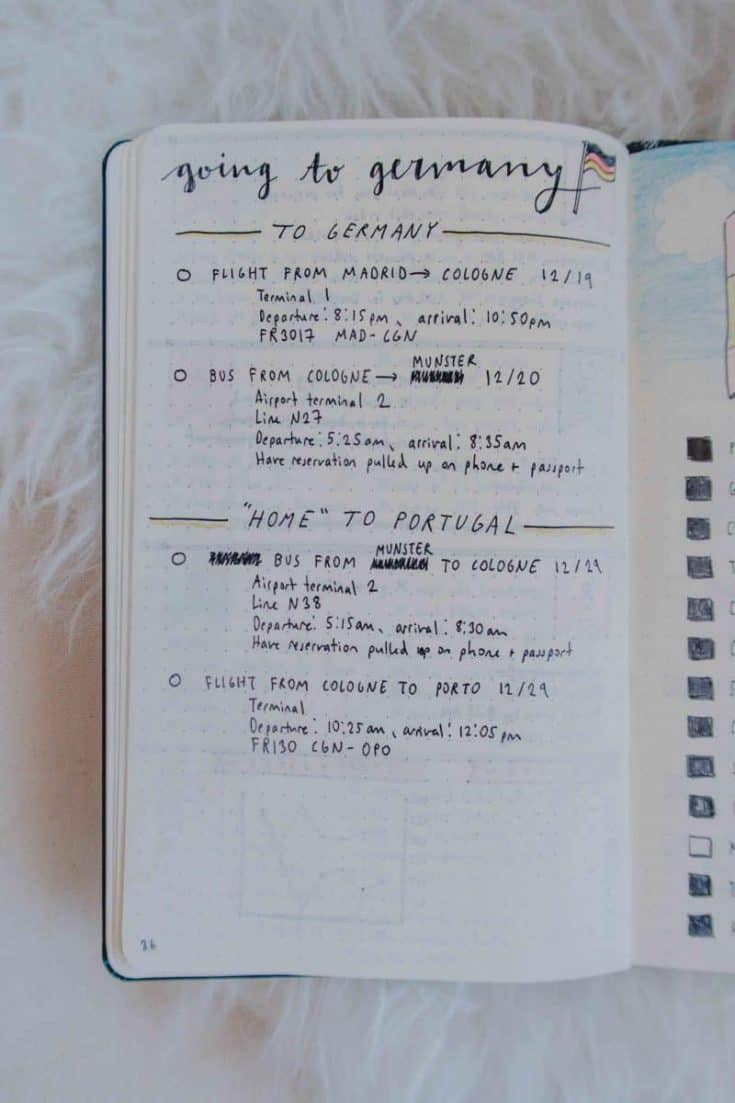 going to germany
TO GERMANY
FLIGHT FROM MADRID → COLOGNE 12/19
Terminal 1
Departure: 8:15pm, arrival: 10:50pm
FR3017 MAD-CGN
MUNSTER
BUS FROM COLOGNE → 12/20
Airport terminal 2
Line N27
Departure: 5:25am, arrival: 8:35am
Have reservation pulled up on phone + passport
"HOME" TO PORTUGAL
MUNSTER
BUS FROM TO COLOGNE 12/29
Airport terminal 2
Line N38
Departure: 5:15am, arrival: 8:30am
Have reservation pulled up on phone + passport
FLIGHT FROM COLOGNE TO PORTO 12/29
Terminal
Departure: 10:25am, arrival: 12:05pm
FR130 CGN-OPO
26